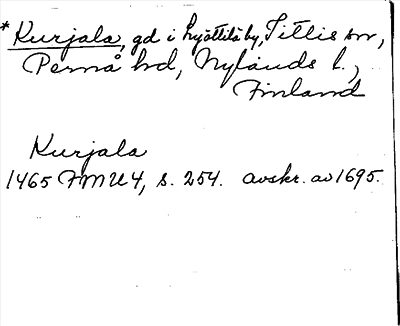 * Kurjala, gd i Kyöttilä by, Littis sn,
Pernå hd, Nylands l.,
Finland
Kurjala
1465 FMU 4, s. 254. avskr. av 1695.